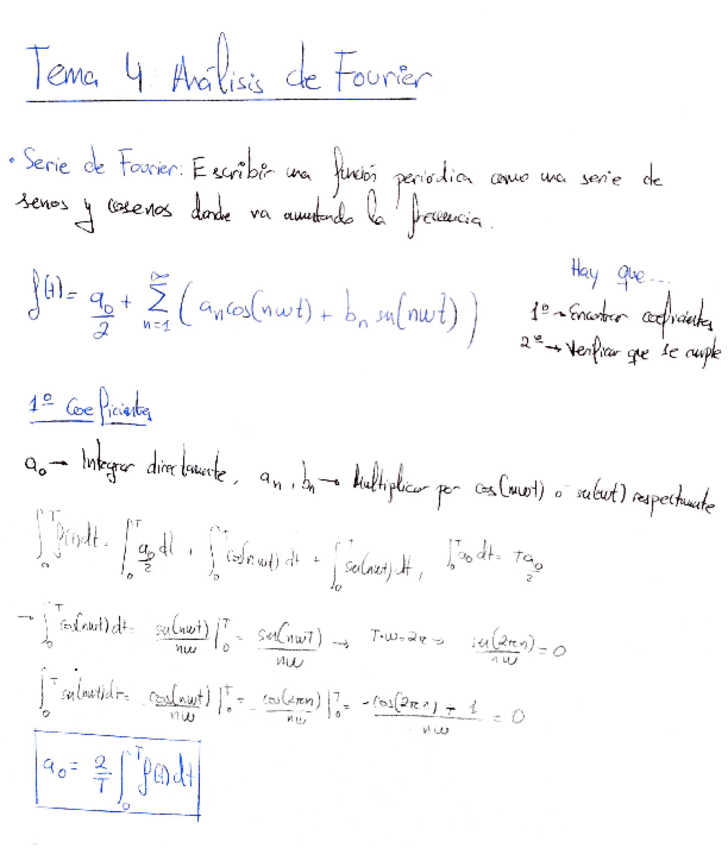 Tema 4 Análisis de Fourier
• Serie de Fourier: Escribir una función periódica como una serie de
senos y cosenos donde va aumentando la frecuencia.
f(t) = a₀/2 + ∑_{n=1}^{∞} (aₙcos(nwt) + bₙ sen(nwt))
Hay que...
1º → Encontrar coeficientes
2º → Verificar que se cumple
1º Coeficientes
a₀ → Integrar directamente, aₙ, bₙ → Multiplicar por cos(mwt) o sen(wt) respectivamente
∫₀ᵀ f(t)dt = ∫₀ᵀ a₀/2 dt + ∫₀ᵀ cos(nwt) dt + ∫₀ᵀ sen(nwt) dt, ∫₀ᵀ a₀ dt = Ta₀/2
→ ∫₀ᵀ cos(nwt) dt = sen(nwt)/nw |₀ᵀ = sen(nwT)/nw → T·w=2π → sen(2πn)/nw = 0
∫₀ᵀ sen(nwt)dt = cos(nwt)/nw |₀ᵀ = cos(2πn)/nw |₀ᵀ = -cos(2πn) + 1/nw = 0
a₀ = 2/T ∫₀ᵀ f(t) dt